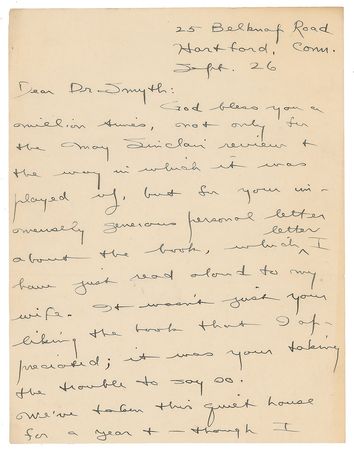 25 Belknap Road
Hartford, Conn.
Sept. 26
Dear Dr. Smyth:
God bless you a
million times, not only for
the May Sinclair review &
the way in which it was
played up, but for your im-
mensely generous personal letter
about the book, which letter I
have just read aloud to my
wife. It wasn't just your
liking the book that I ap-
preciated; it was your taking
the trouble to say so.
We've taken this quiet house
for a year & — though I